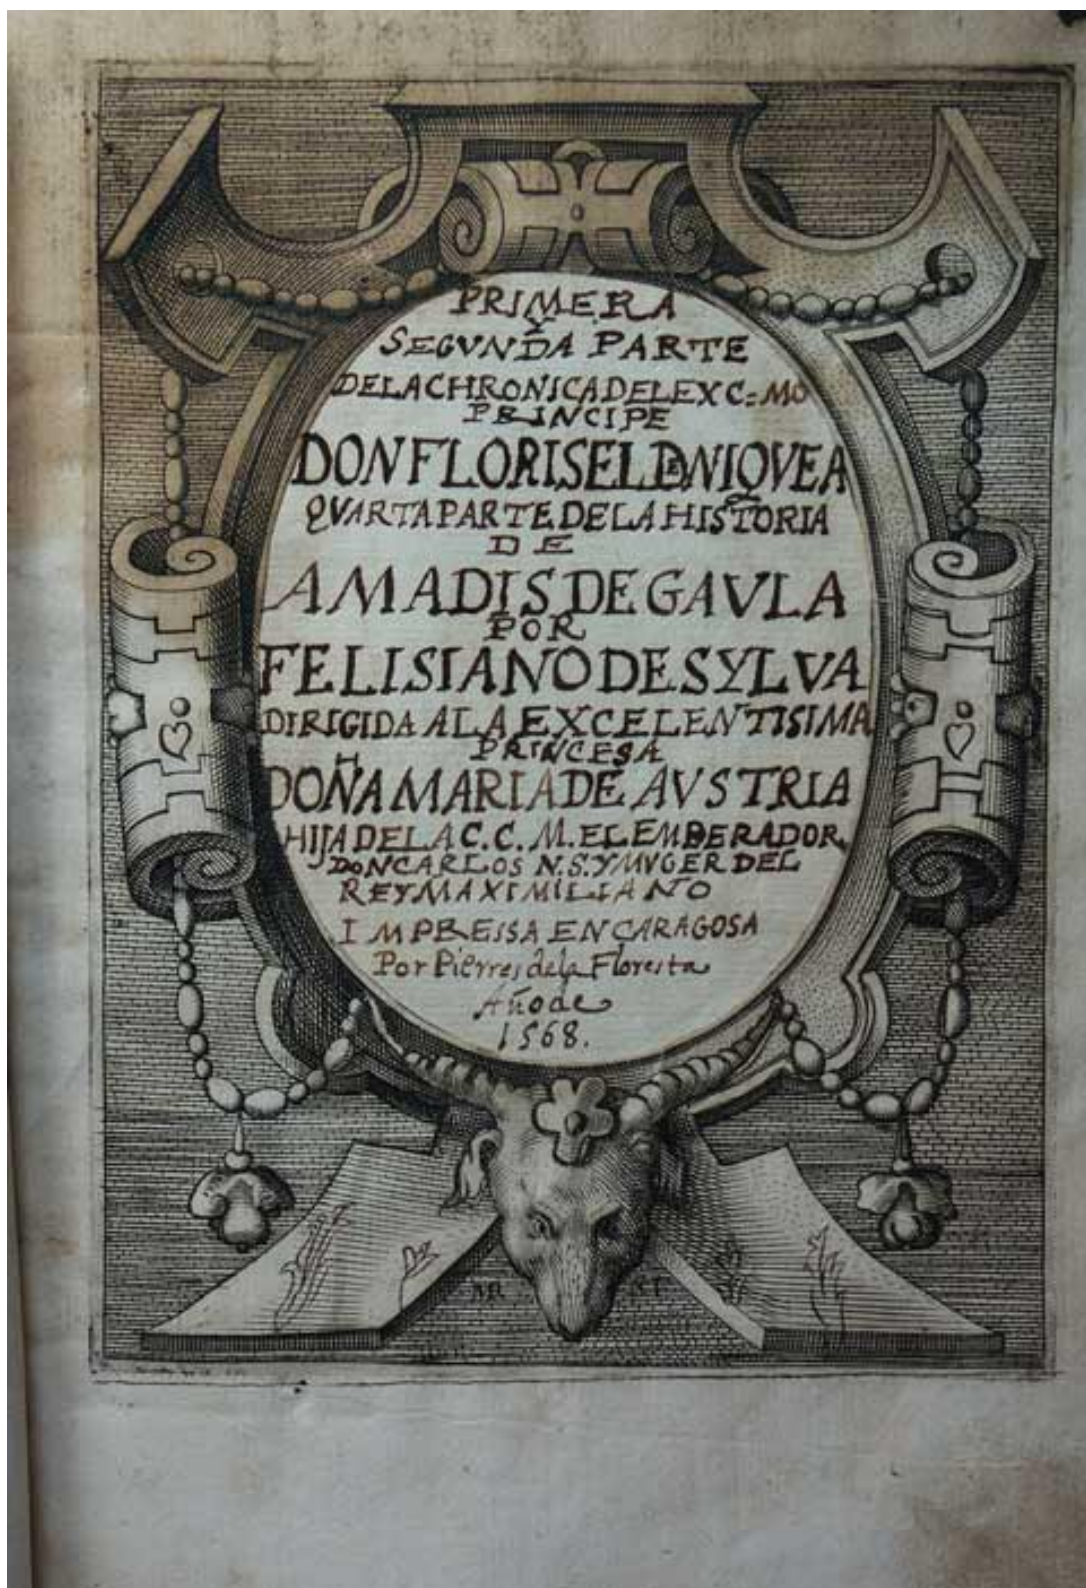 PRIMERA
Y
SEGVNDA PARTE
DE LA CHRONICA DEL EXC=MO
PRINCIPE
DON FLORISEL DE NIQVEA
QVARTA PARTE DE LA HISTORIA
DE
AMADIS DE GAVLA
POR
FELISIANO DE SYLVA
DIRIGIDA A LA EXCELENTISIMA
PRINCESA
DOÑA MARIA DE AVSTRIA
HIJA DE LA C.C.M. EL EMBERADOR
DON CARLOS N.S. Y MVGER DEL
REY MAXIMILIANO
IMPRESSA EN CARAGOSA
Por Pierres de la Floresta
Año de
1568.